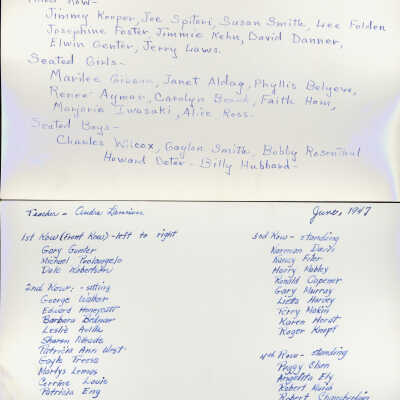 Third Row-
Jimmy Kooper, Joe Spiteri, Susan Smith, Lee Folden
Josephine Foster Jimmie Kehn, David Danner,
Elwin Genter, Jerry Laws.
Seated Girls-
Marilee Gibson, Janet Aldag, Phyllis Belyeve,
Renee Aymar, Carolyn Beach, Faith Ham,
Marjorie Iwasaki, Alice Ross.
Seated Boys-
Charles Wilcox, Gaylon Smith, Bobby Rosenthal
Howard Deter- Billy Hubbard-
Teacher - June, 1947
1st Row (Front Row) - left to right
Gary Gunter
Michael Paolangelo
Dale Robertson
2nd Row: - sitting
George Walker
Edward Honeycutt
Barbara Bednar
Leslie Avilla
Sharon
Patricia Ann West
Gayle Tressa
Marlys Lemos
Corrine Louie
Patricia Eng
3rd Row - standing
Norman Davis
Nancy Fifer
Harry Mobley
Ronald Capener
Gary Murray
Linda Harvey
Terry Makin
Karen Horst
Roger Knopf
4th Row - standing
Peggy Chen
Angelita Ely
Robert
Robert Chamberlain